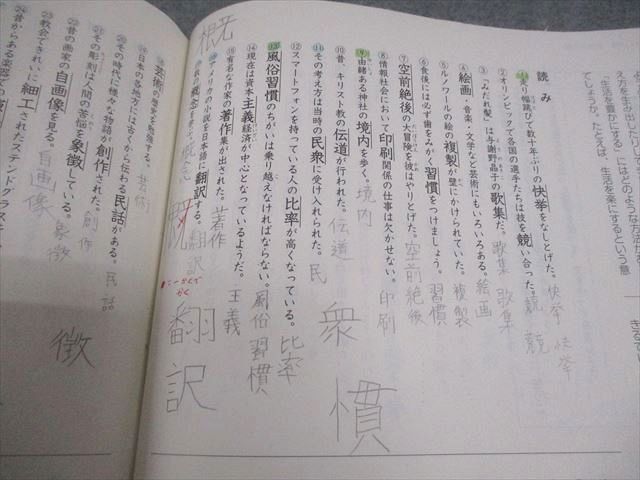 読み
走り幅跳びで数十年ぶりの快挙をなしとげた。快挙
オリンピックで各国の選手たちは技を競い合った。競
③「みだれ髪」は与謝野晶子の歌集だ。歌集
④絵画・音楽・文学など芸術にもいろいろある。絵画
⑤ルノワールの絵の複製が壁にかけられていた。複製
⑥食後には必ず歯をみがく習慣をつけましょう。習慣
⑦空前絶後の大冒険を彼はやりとげた。空前絶後
⑧情報社会において印刷関係の仕事は欠かせない。印刷
⑨由緒ある神社の境内を歩く。境内
⑩昔、キリスト教の伝道が行われた。伝道
⑪その考えは当時の民衆に受け入れられた。民
⑫スマートフォンを持っている人の比率が高くなっている。比率
⑬風俗習慣のちがいは乗り越えなければならない。風俗習慣
⑭現在は資本主義経済が中心となっているようだ。主義
⑮有名な作家の著作集が出された。著作
アメリカの小説を日本語に翻訳する。翻訳
概念
芸術の秋
芸術
日本の各地方には古くから伝わる民話がある。民話
その時代に様々な物語が創作された。創作
その彫刻は人間の苦悩を象徴している。象徴
昔の画家の自画像を見る。自画像
教会できれいに細工されたステンドグラスを
昔からある楽器で
快挙
競
歌集
衆
慣
翻訳
概
徴
「生活を豊かにする」にはどのような方法がある
でしょうか。たとえば、生活を楽にするという意